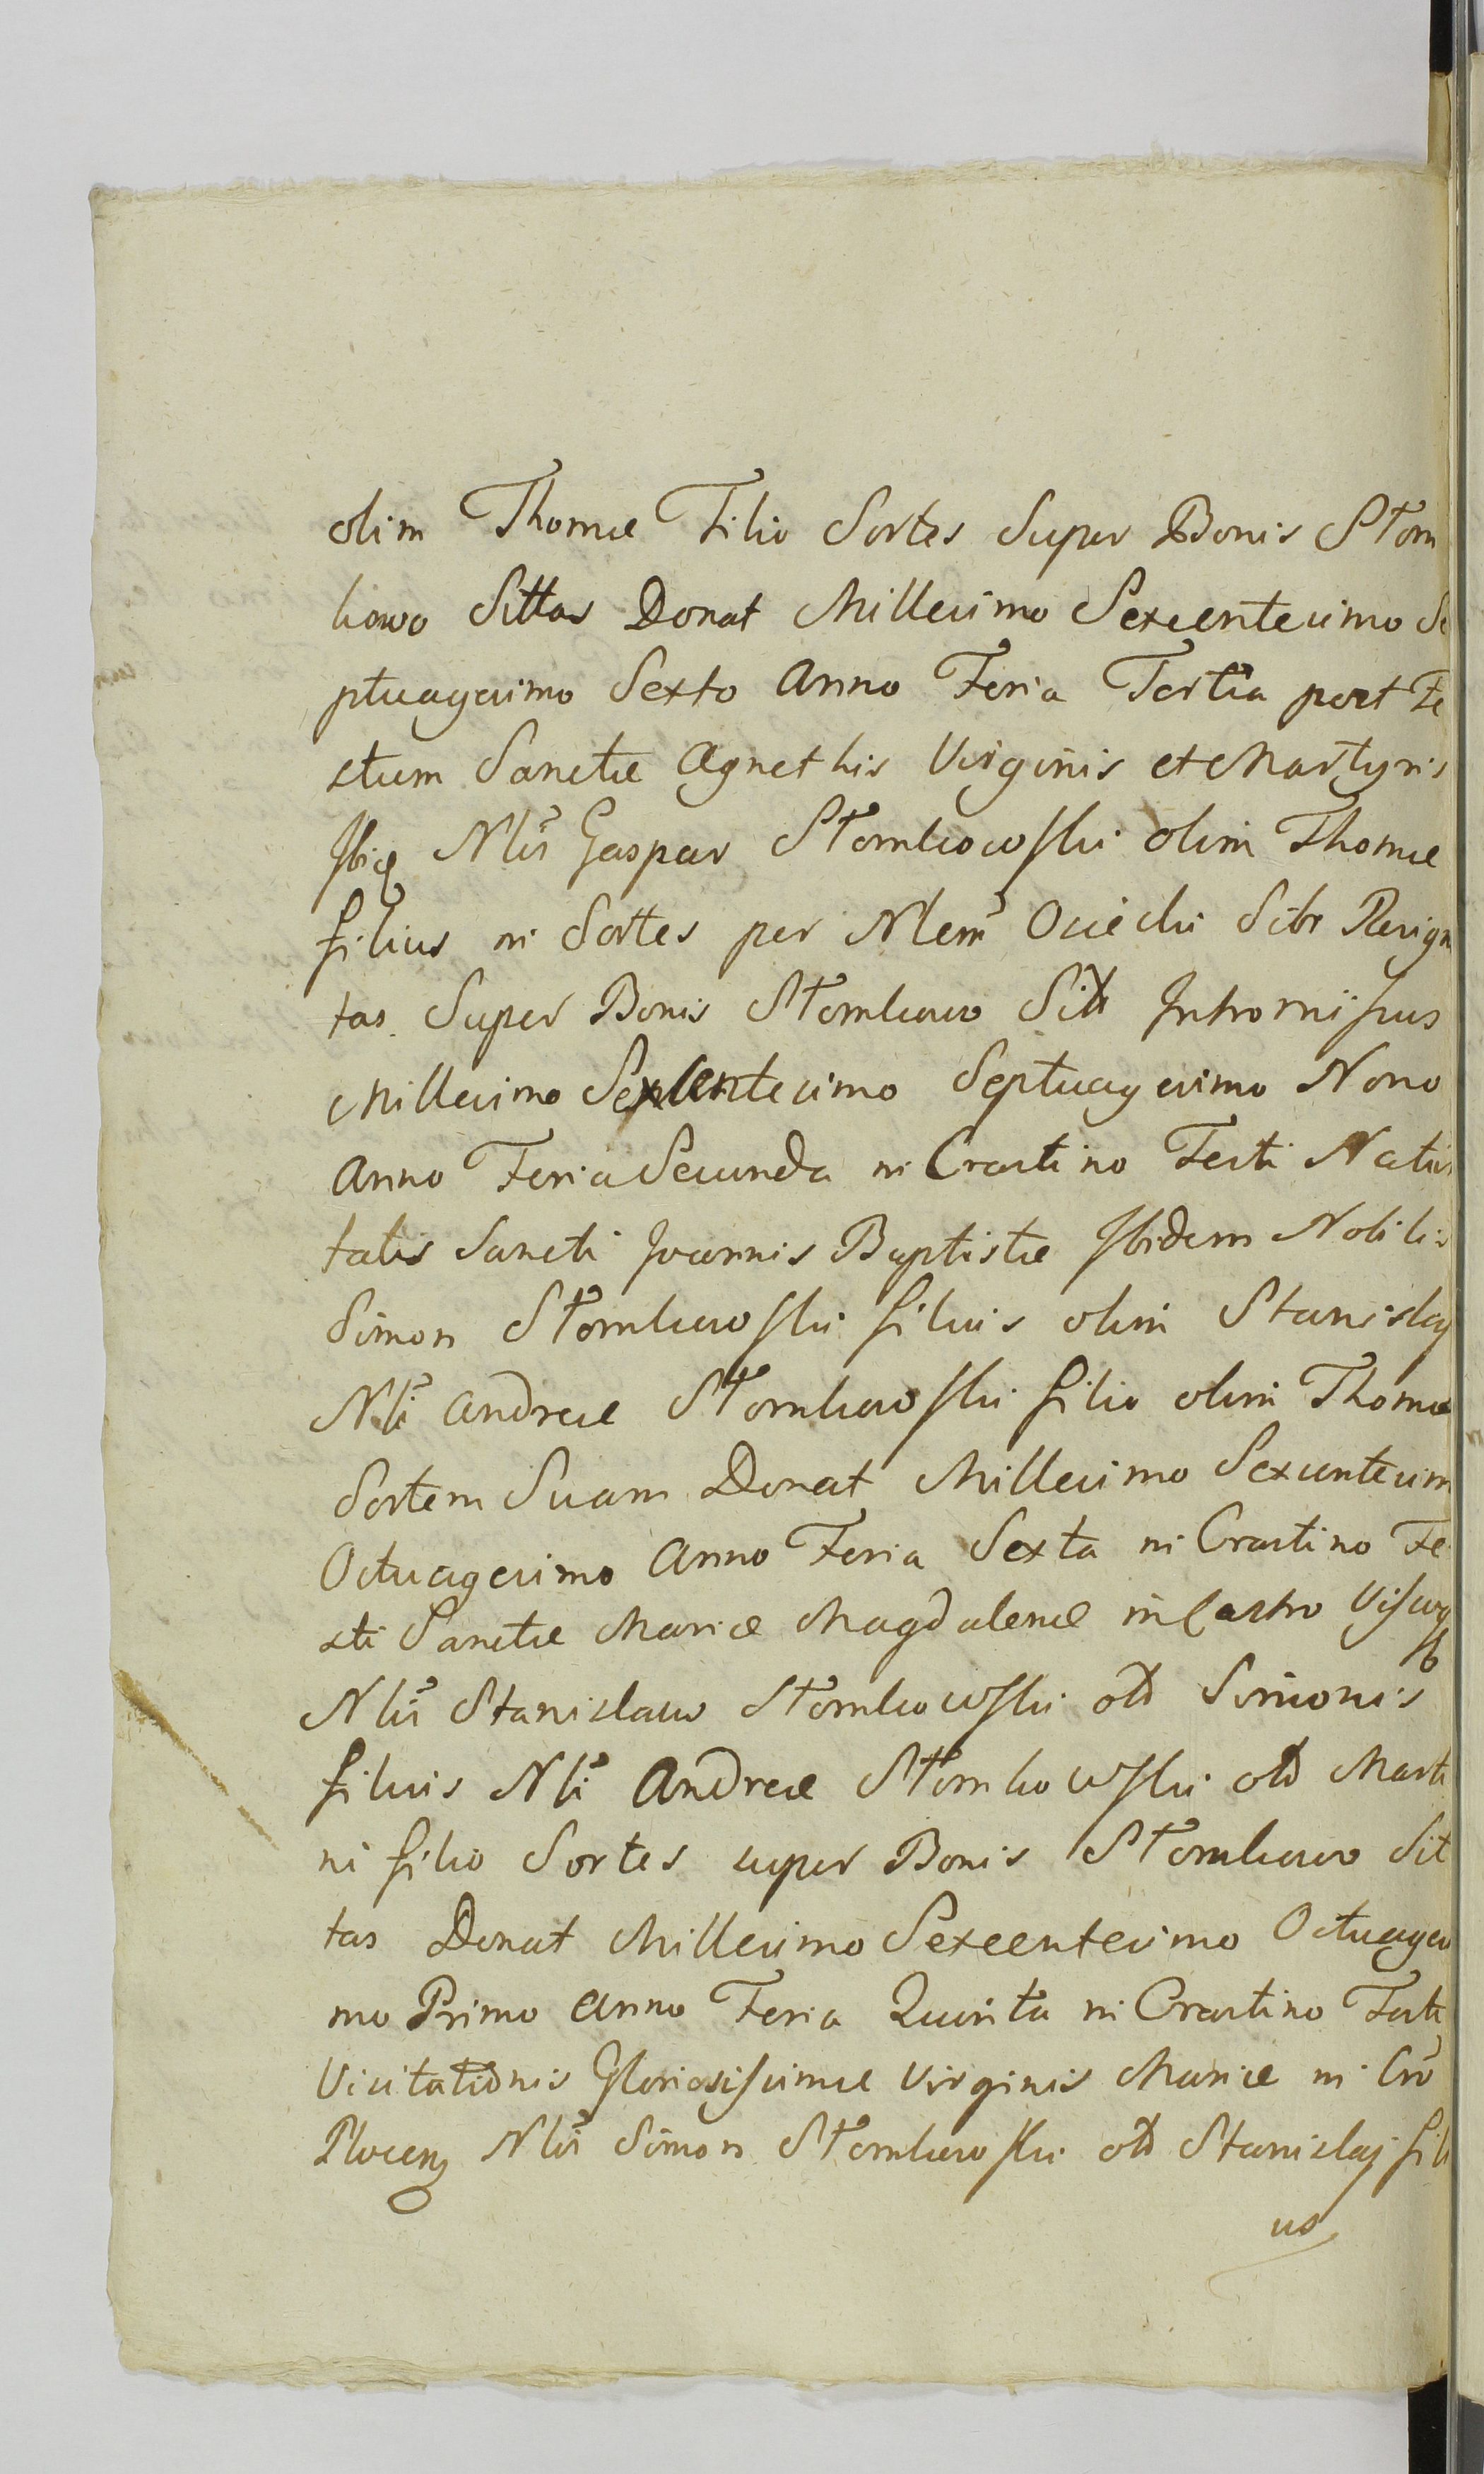 olim Thomæ Filio Sortes Super Bonis Stom
kowo Sittas Donat Millesimo Sexcentesimo Se
ptuagesimo Sexto Anno Feria Tertia post Fe
stum Sanctæ Agnethis Virginis et Martyris
Ibiq Nlis Gaspar Stomkowski olim Thomæ
filius in Sortes per Nlem Sibi Resign
tas Super Bonis Stomkowo Sitt Intromissus
Millesimo Sexcentesimo Septuagesimo Nono
Anno Feria Secunda in Crastino Festi Nativi
tatis Sancti Joannis Baptistæ Ibidem Nobilis
Simon Stomkowski filius olim Stanislaj
Nli Andreæ Stomkowski filio olim Thomæ
Sortem Suam Donat Millesimo Sexcentesim
Octuagesimo Anno Feria Sexta in Crastino Fe
sti Sanctæ Mariæ Magdalenæ in Castro
Nlis Stanislaus Stomkowski old Simonis
filius Nli Andreæ Stomkowski old Marti
ni filio Sortes super Bonis Stomkowo Sit
tas Donat Millesimo Sexcentesimo Octuagesi
mo Primo Anno Feria Quinta in Crastino Festi
Visitationis Gloriosissimæ Virginis Mariæ in Cro
Plocen Nlis Simon Stomkowski old Stanislaj fili
us